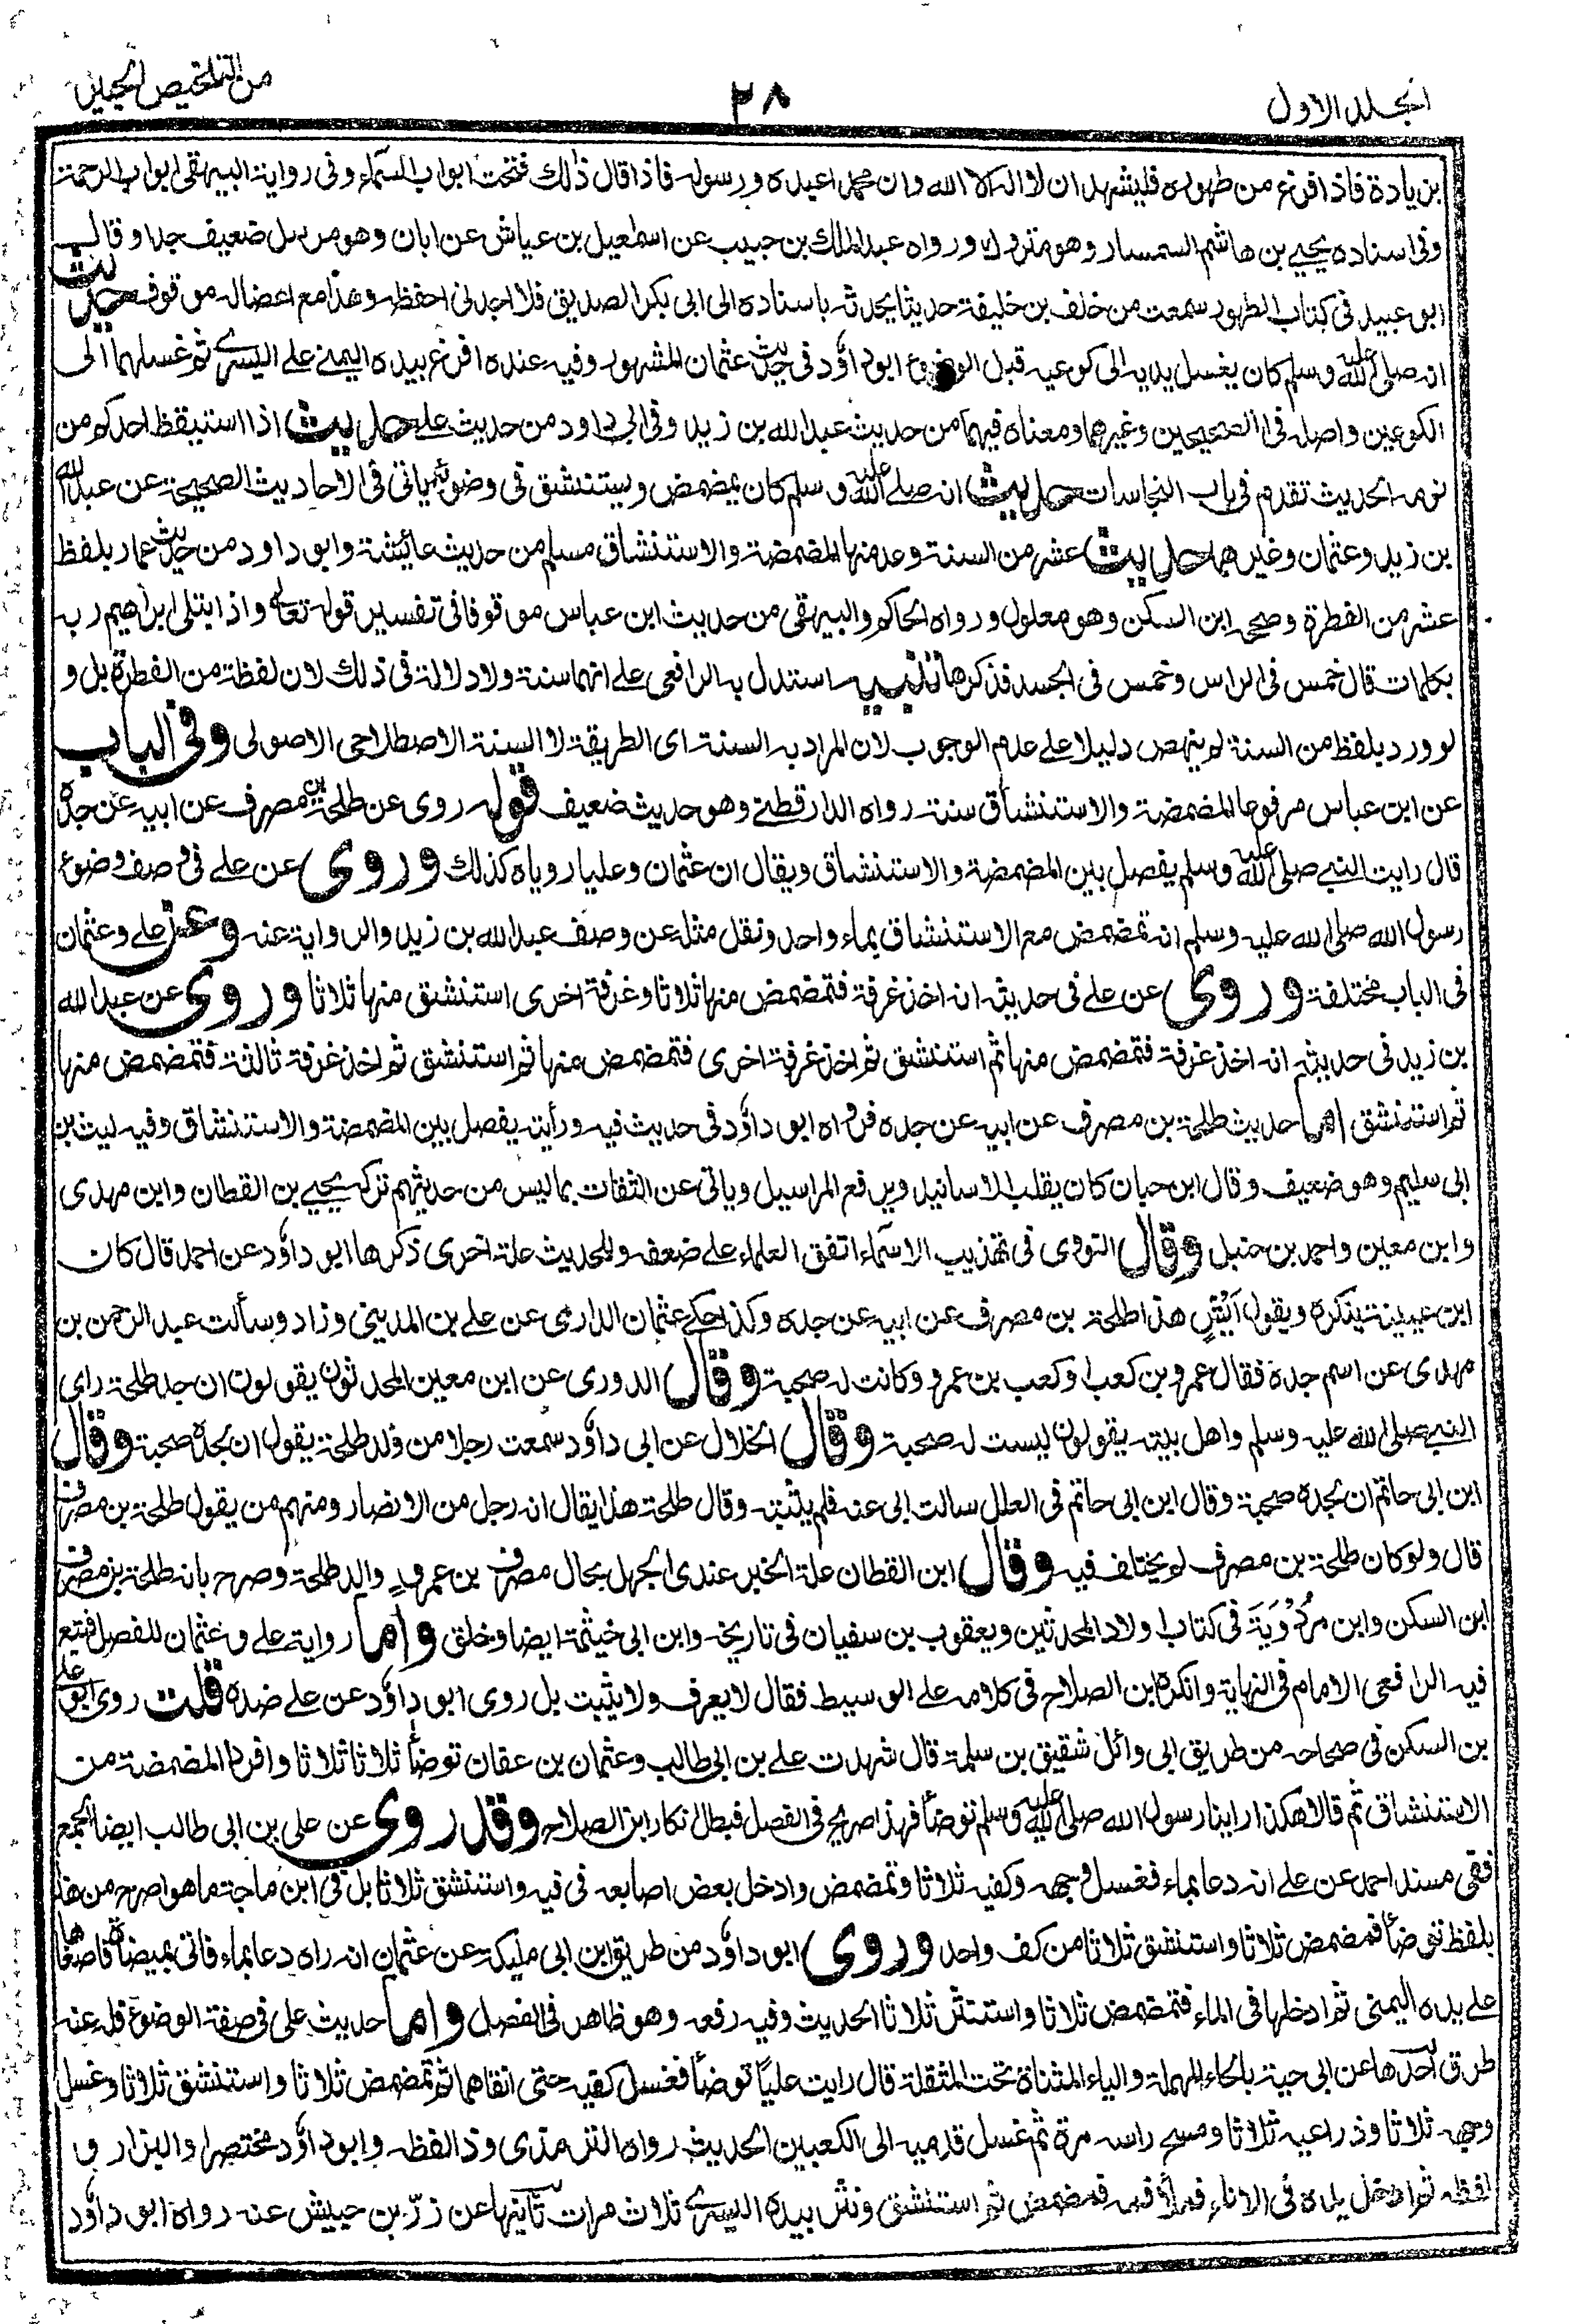 المجلد الاول
٢٨
من التلخيص الحبير
بزيادة فاذا فرغ من طهوره فليشهد ان لا اله الا الله وان محمدا عبده ورسوله فاذا قال ذلك فتحت ابواب السماء وفى رواية البيهقى ابواب الرحمة
وفى اسناده يحيى بن هاشم السمسار وهو متروك ورواه عبد الملك بن حبيب عن اسمعيل بن عياش عن ابان وهو مرسل ضعيف جدا وقال
ابو عبيد فى كتاب الطهور سمعت من خلف بن خليفة حديثا يحدثه باسناده الى ابى بكر الصديق فلا اجدنى احفظه وهذا مع اعضاله موقوف حديث
انه صلى الله عليه وسلم كان يغسل يديه الى كوعيه قبل الوضوء ابو داؤد فى حديث عثمان المشهور وفيه عنده افرغ بيده اليمنى على اليسرى ثم غسلهما الى
الكوعين واصله فى الصحيحين وغيرهما ومعناه فيهما من حديث عبد الله بن زيد وفى ابى داود من حديث على حديث اذا استيقظ احدكم من
نومه الحديث تقدم فى باب النجاسات حديث انه صلى الله عليه وسلم كان يمضمض ويستنشق فى وضوئه يأتى فى الاحاديث الصحيحة عن عبد الله
بن زيد وعثمان وغيرهما حديث عشر من السنة وعد منها المضمضة والاستنشاق مسلم من حديث عائشة وابو داود من حديث عمار بلفظ
عشر من الفطرة وصححه ابن السكن وهو معلول ورواه الحاكم والبيهقى من حديث ابن عباس موقوفا فى تفسير قوله تعالى واذ ابتلى ابراهيم ربه
بكلمات قال خمس فى الراس وخمس فى الجسد فذكرها تنبيه استدل به الرافعى على انهما سنة ولا دلالة فى ذلك لان لفظة من الفطرة بل و
لو ورد بلفظ من السنة لم ينهض دليلا على عدم الوجوب لان المراد به السنة اى الطريقة لا السنة الاصطلاحى الاصولى وفى الباب
عن ابن عباس مرفوعا المضمضة والاستنشاق سنة رواه الدارقطنى وهو حديث ضعيف قوله روى عن طلحة بن مصرف عن ابيه عن جده
قال رايت النبى صلى الله عليه وسلم يفصل بين المضمضة والاستنشاق ويقال ان عثمان وعليا روياه كذلك وروى عن على فى وصف وضوء
رسول الله صلى الله عليه وسلم انه تمضمض مع الاستنشاق بماء واحد ونقل مثله عن وصف عبد الله بن زيد والرواية عنه وعن على وعثمان
فى الباب مختلفة وروى عن على فى حديثه انه اخذ غرفة فتمضمض منها ثلاثا وغرفة اخرى استنشق منها ثلاثا وروى عن عبد الله
بن زيد فى حديثه انه اخذ غرفة فتمضمض منها ثم استنشق ثم اخذ غرفة اخرى فتمضمض منها ثم استنشق ثم اخذ غرفة ثالثة فتمضمض منها
ثم استنشق اما حديث طلحة بن مصرف عن ابيه عن جده فرواه ابو داؤد فى حديث فيه ورأيته يفصل بين المضمضة والاستنشاق وفيه ليث بن
ابى سليم وهو ضعيف وقال ابن حبان كان يقلب الاسانيد ويرفع المراسيل ويأتى عن الثقات بما ليس من حديثهم تركه يحيى بن القطان وابن مهدى
وابن معين واحمد بن حنبل وقال النووى فى تهذيب الاسماء اتفق العلماء على ضعفه وللحديث علة اخرى ذكرها ابو داؤد عن احمد قال كان
ابن عيينة ينكره ويقول ايش هذا طلحة بن مصرف عن ابيه عن جده وكذا حكى عثمان الدارمى عن على بن المدينى وزاد وسألت عبد الرحمن بن
مهدى عن اسم جده فقال عمرو بن كعب او كعب بن عمرو وكانت له صحبة وقال الدورى عن ابن معين المحدثون يقولون ان جد طلحة راى
النبى صلى الله عليه وسلم واهل بيته يقولون ليست له صحبة وقال الخلال عن ابى داؤد سمعت رجلا من ولد طلحة يقول ان لجده صحبة وقال
ابن ابى حاتم ان لجده صحبة وقال ابن ابى حاتم فى العلل سالت ابى عنه فلم يثبته وقال طلحة هذا يقال انه رجل من الانصار ومنهم من يقول طلحة بن مصرف
قال ولو كان طلحة بن مصرف لم يختلف فيه وقال ابن القطان علة الخبر عندى الجهل بحال مصرف بن عمرو والد طلحة وصرح بانه طلحة بن مصرف
ابن السكن وابن مردويه فى كتاب اولاد المحدثين ويعقوب بن سفيان فى تاريخه وابن ابى خيثمة ايضا وخلق واما رواية على وعثمان للفصل فتبع
فيه الرافعى الامام فى النهاية وانكره ابن الصلاح فى كلامه على الوسيط فقال لا يعرف ولا يثبت بل روى ابو داؤد عن على ضده قلت روى ابو على
بن السكن فى صحاحه من طريق ابى وائل شقيق بن سلمة قال شهدت على بن ابى طالب وعثمان بن عفان توضأ ثلاثا ثلاثا وافردا المضمضة من
الاستنشاق ثم قالا هكذا راينا رسول الله صلى الله عليه وسلم توضأ فهذا صريح فى الفصل فبطل انكار ابن الصلاح وقد روى عن على بن ابى طالب ايضا الجمع
ففى مسند احمد عن على انه دعا بماء فغسل وجهه وكفيه ثلاثا وتمضمض وادخل بعض اصابعه فى فيه واستنشق ثلاثا بل فى ابن ماجة ما هو اصرح من هذا
بلفظ توضأ فمضمض ثلاثا واستنشق ثلاثا من كف واحد وروى ابو داؤد من طريق ابن ابى مليكة عن عثمان انه راه دعا بماء فاتى بميضاة فاصغاها
على يده اليمنى ثم ادخلها فى الماء فتمضمض ثلاثا واستنثر ثلاثا الحديث وفيه رفعه وهو ظاهر فى الفصل واما حديث على فى صفة الوضوء فله عنه
طرق احدها عن ابى حية بالحاء المهملة والياء المثناة تحت المثقلة قال رايت عليا توضأ فغسل كفيه حتى انقاهما ثم تمضمض ثلاثا واستنشق ثلاثا وغسل
وجهه ثلاثا وذراعيه ثلاثا ومسح راسه مرة ثم غسل قدميه الى الكعبين الحديث رواه الترمذى وذا لفظه وابو داؤد مختصرا والبزار و
لفظه ثم ادخل يده فى الاناء فملأ فمه فمضمض ثم استنشق ونثر بيده اليسرى ثلاث مرات ثانيها عن زر بن حبيش عنه رواه ابو داؤد